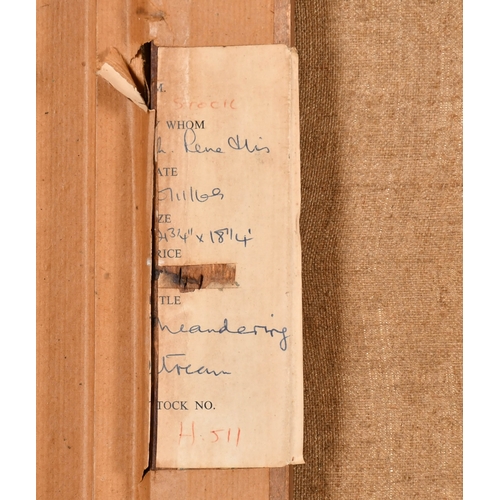 M.
Stock
WHOM
h. Rene His
ATE
/11/69
ZE
4¾" x 18¼"
RICE
TLE
Meandering
tream
TOCK NO.
H.511